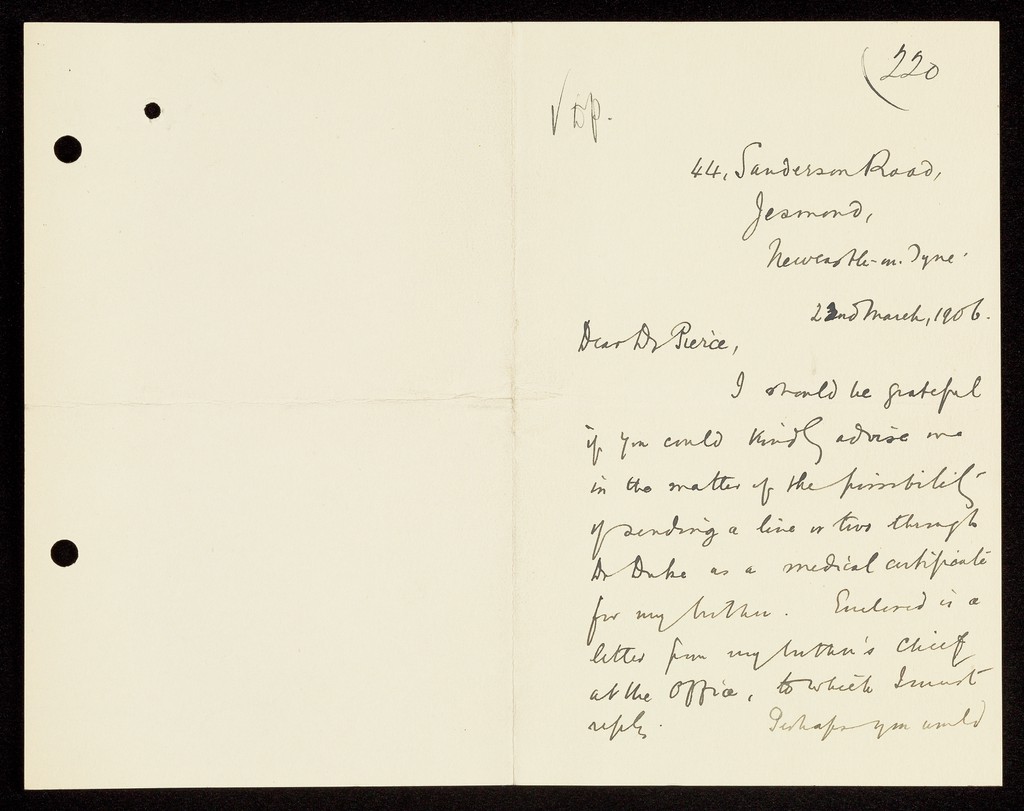 (220
√ D.P.
44, Sanderson Road,
Jesmond,
Newcastle-on-Tyne.
22nd March, 1906.
Dear Dr Pierce,
I should be grateful
if you could kindly advise me
in the matter of the possibility
of sending a line or two through
Dr Duke as a medical certificate
for my brother. Enclosed is a
letter from my brother's chief
at the Office, to which I must
reply. Perhaps you would